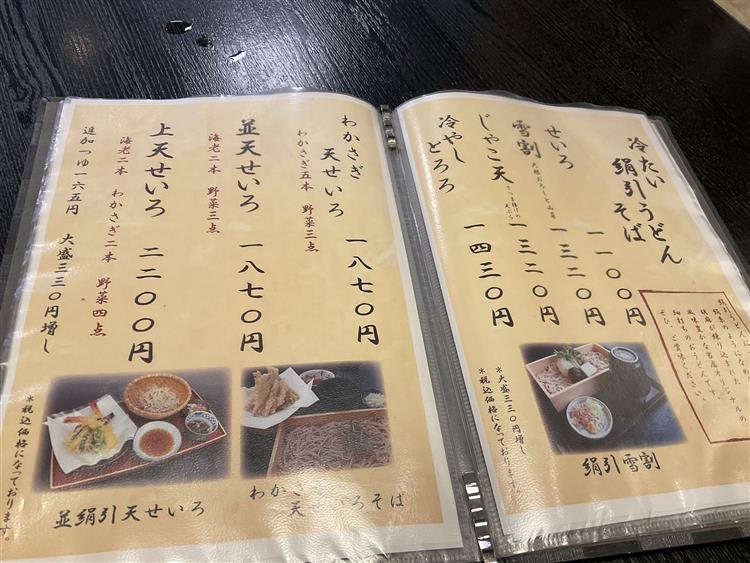 冷たい
絹引うどん
そば
せいろ 一一〇〇円
雪割 大根おろしと山菜 一三二〇円
じゃこ天 さつま揚げの天ぷら 一三二〇円
冷やしとろろ 一四三〇円
＊大盛三三〇円増し
＊税込価格になっております。
絹引雪割
わかさぎ
天せいろ 一八七〇円
わかさぎ五本 野菜三点
並天せいろ 一八七〇円
海老二本 野菜三点
上天せいろ 二二〇〇円
海老二本 わかさぎ二本 野菜四点
追加つゆ一六五円 大盛三三〇円増し
わかさ
天せいろそば
並絹引天せいろ
＊税込価格になっております。